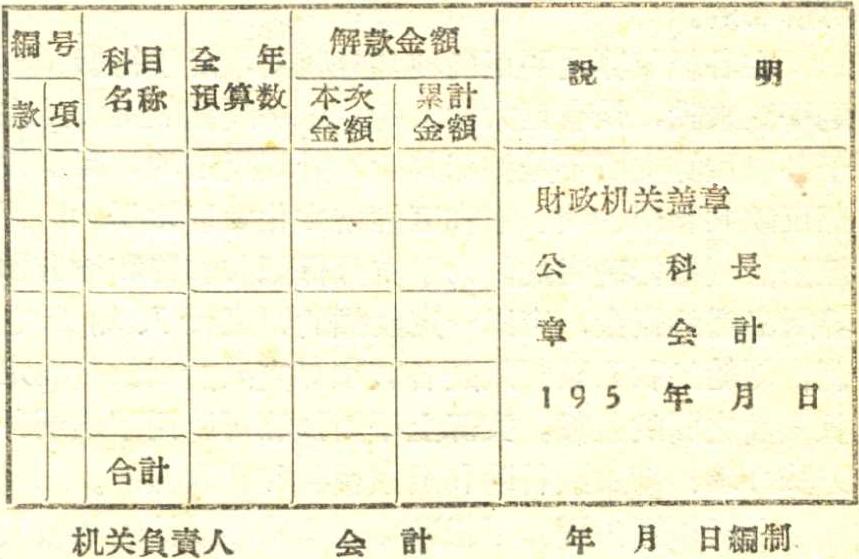 編号 科目名称 全年預算数 解款金額 說明
款 項 本次金額 累計金額
財政机关盖章
公 科長
章 会計
195 年 月 日
合計
机关負責人 会計 年 月 日編制